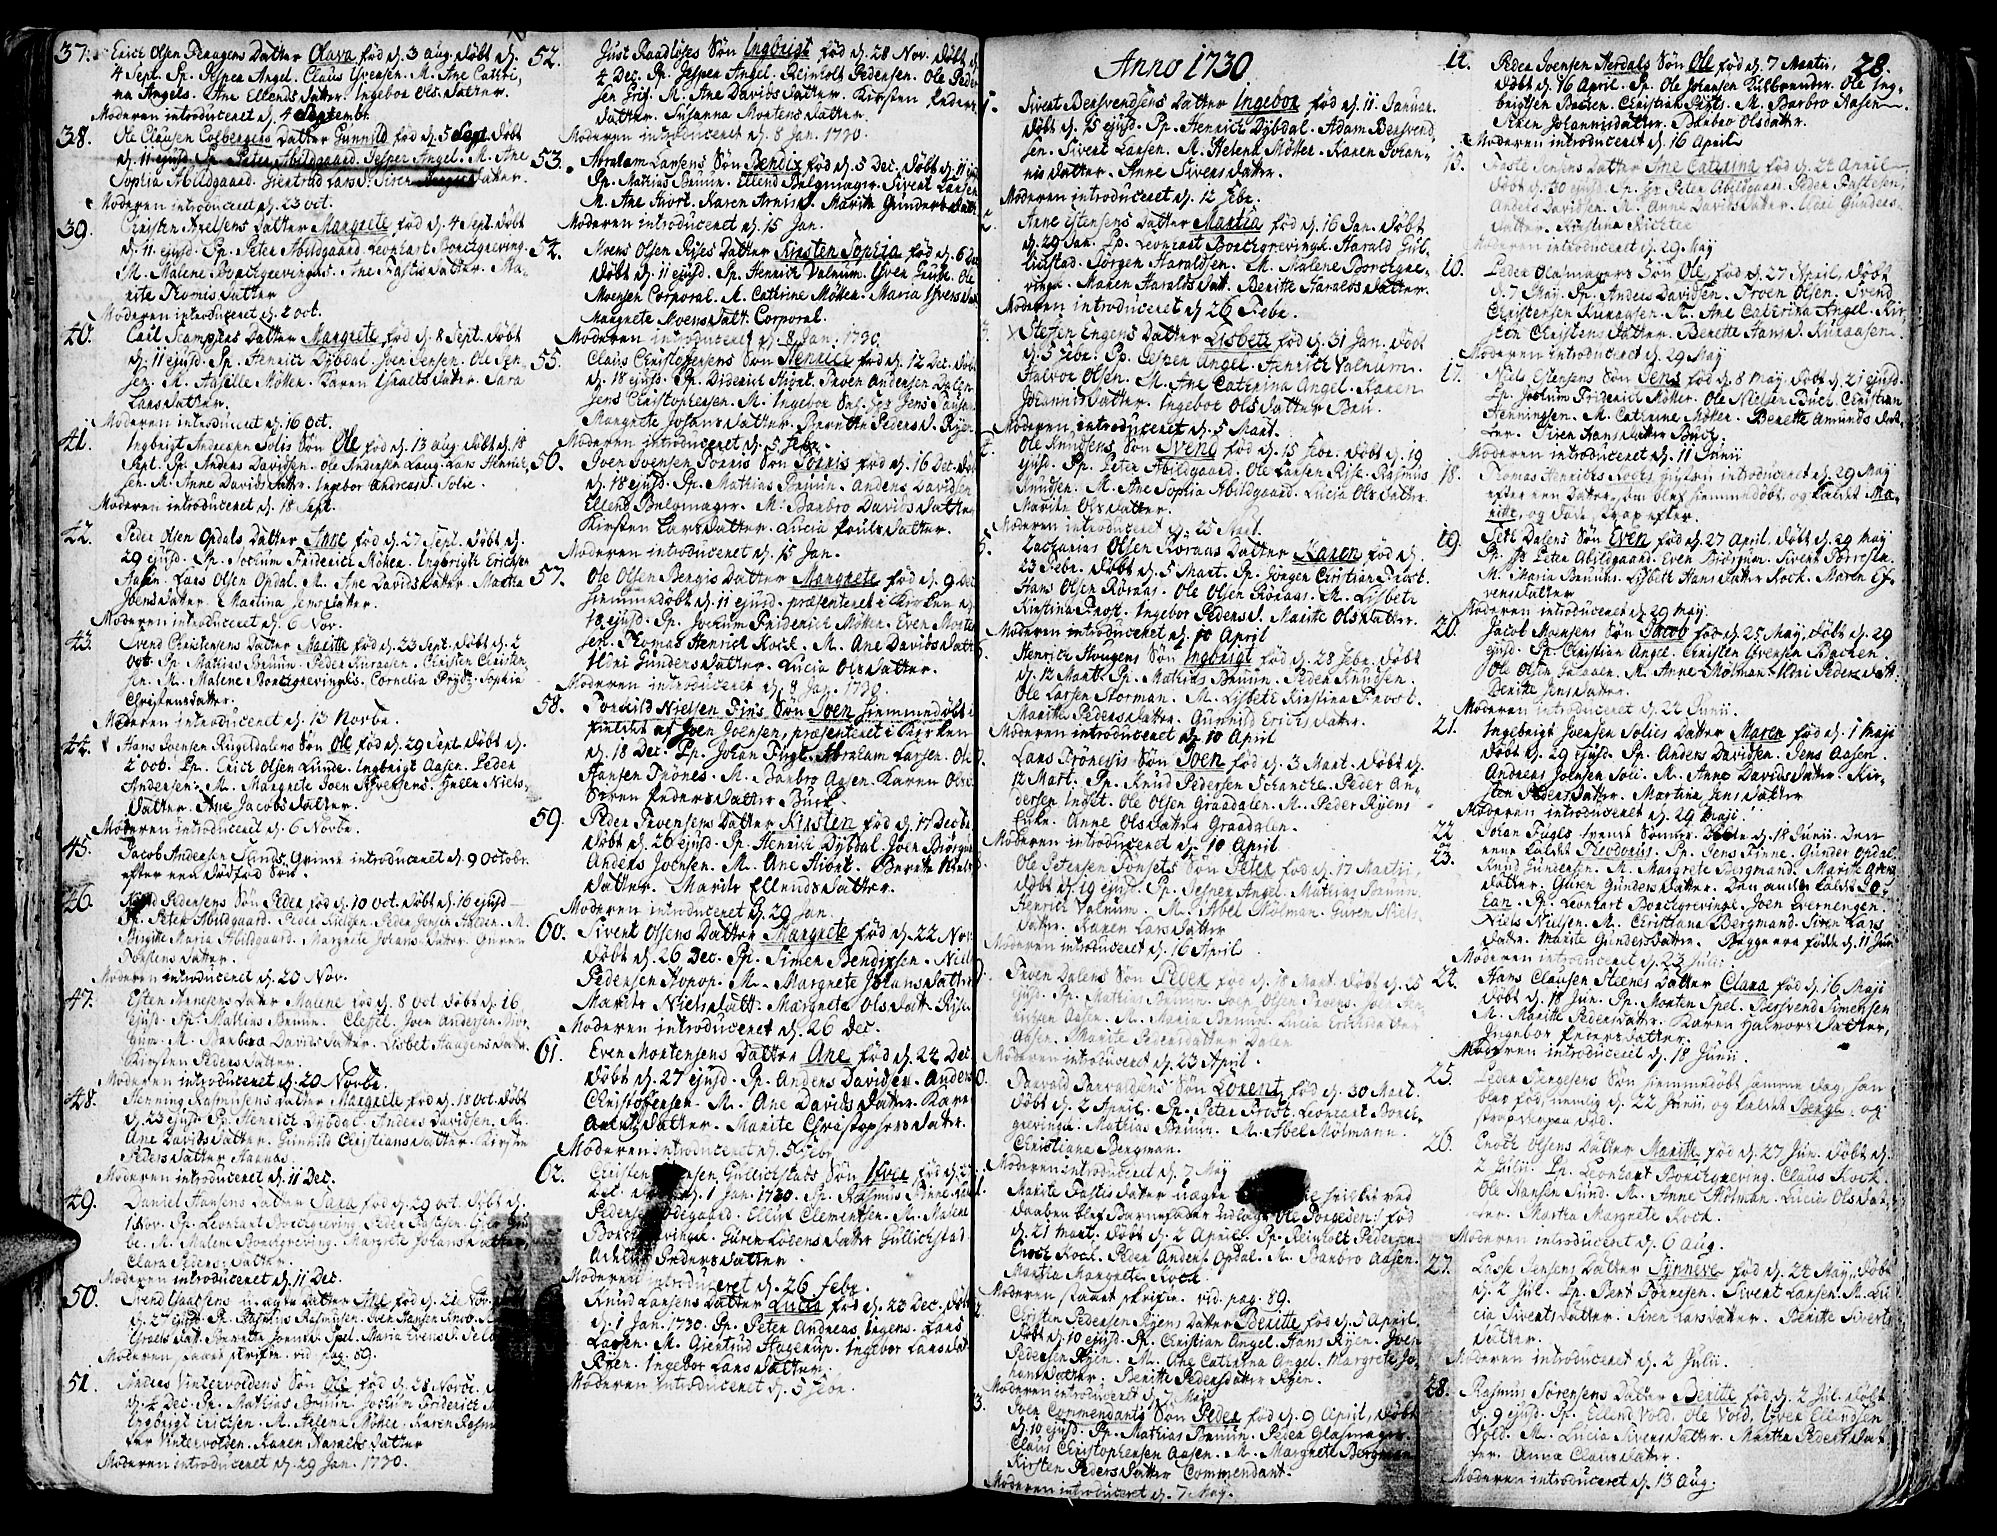 37. Erich Olsen Datter Olava fød d. 3 aug. døbt d.
4 Sept. Pp. Jesper Angel. Claus Iversen. M. Ane Cathri-
na Angels. Ane Ellends Datter. Ingebor Ols Datter.
Moderen introduceret d. 4 Septembr
38. Ole Clausen Colbergens Datter Gunnild fød d. 5 Sept. døbt
d. 11 ejusd. Pp. Peter Abildgaard. Jesper Angel. M. Ane
Sophia Abildgaard. Giertrud Lars D. Siren Datter.
Moderen introduceret d. 23 oct.
39. Christen Axelsens Datter Margrete fød d. 4 Sept. døbt
d. 11 ejusd. Pp. Peter Abildgaard. Leonhart Borchgreving.
M. Malene Borchgrevingks. Ane Datter. Ma-
rite Thomis Datter
Moderen introduceret d. 2 oct.
40. Carl Datter Margrete fød d. 8 Sept. døbt
d. 11 ejusd. Pp. Henrich Dybdal. Joen Jensen. Ole Jen-
sen. M. Møller. Karen Israels Datter. Sara
Lars Datter.
Moderen introduceret d. 16 oct.
41. Ingbrigt Andersen Solis Søn Ole fød d. 13 aug. døbt d. 18
Sept. Pp. Anders Davidsen. Ole Andersen Lars Henrich-
sen. M. Anne Davids Datter. Ingebor Andreæ D. Solie.
Moderen introduceret d. 18 Sept.
42. Peder Olsen Opdals Datter Anne fød d. 27 Sept. døbt d.
29 ejusd. Pp. Jochum Friderich Möller. Ingbrigt Erichsen
Aasen. Lars Olsen Opdal. M. Ane Davids Datter. Martha
Joens Datter. Martina Jens Datter.
Moderen introduceret d. 6 Nov.
43. Svend Christensens Datter Maritte fød d. 23 Sept. døbt d. 2
Oct. Pp. Mathias Bruun. Peder Kuraasen. Christen Christen-
sen. M. Malene Borchgrevings. Cornelia Prytz. Sophia
Christensdatter.
Moderen introduceret d. 13 Norbe.
44. Hans Joensen Rugeldalens Søn Ole fød d. 29 Sept. døbt d.
2 oct. Pp. Erich Olsen Lunde. Ingbrigt Aasen. Peder
Andersen. M. Margrete Joen Niels-
Datter. Ane Jacobs Datter.
Moderen introduceret d. 6 Norbe.
45. Jacob Andersen Qvinde introduceret d. 9 Octobr.
efter een dødfød Søn.
46. Pedersens Søn Peder fød d. 10 oct. døbt d. 16 ejusd.
Pp. Peter Abildgaard. Peder Peder Jensen M.
Birgitte Maria Abildgaard. Margrete Johans Datter. Guren
Datter.
Moderen introduceret d. 20 Nov.
47. Esten Datter Malene fød d. 8 oct døbt d. 16
ejusd. Pp. Mathias Bruun. Joen Andersen
M. Barbera Davids Datter. Lisbet Haagens Datter.
Kirsten Peders Datter.
Moderen introduceret d. 20 Norbe.
48. Henning Rasmusens Datter Margrete fød d. 18 oct. døbt
d. 23 ejusd. Pp. Henrich Dybdal. Anders Davidsen. M.
Ane Davids Datter. Gunhild Christians Datter. Kirsten
Peders Datter Aasnas.
Moderen introduceret d. 11 Dec.
49. Daniel Hansens Datter Sara fød d. 29 oct. døbt d.
1 Nov. Pp. Leonhart Borchgreving. Peder
M. Malene Borchgreving. Margrete Johans Datter.
Clara Peders Datter.
Moderen introduceret d. 11 Dec.
50. Svend uægte Datter Ane fød d. Nov.
d. 27 ejusd. Pp. Rasmus Rasmusen.
Moderen staaet skrifte. vid. pag. 89.
51. Anders Vintervoldens Søn Ole fød d. 28 Norbe.
d. 4 Dec. Pp. Mathias Bruun. Jochum Friderich
Ingbrigt Erichsen. M. Helena Möller. Karen Rasm
ter Vintervolden. Karen Haralds Datter
Moderen introduceret d. 29 Jan. 1730.
52. Just Raadløses Søn Ingbrigt fød d. 28 Nov. døbt d.
4 Dec. Pp. Jesper Angel. Reinholt Pedersen. Ole Peder-
sen M. Ane Davids Datter. Kirsten Peders
Datter. Susanna Mortens Datter.
Moderen introduceret d. 8 Jan. 1730.
53. Abraham Larsens Søn Bendix fød d. 5 Dec. døbt d. 11 ejusd
Pp. Mathias Bruun. Ellend Belgmager. Sivert Larsen
M. Ane Hiort. Karen Marith Gunders Datter
Moderen introduceret d. 15 Jan.
54. Moens Olsen Ryes Datter Kirsten Sophia fød d. 6 Dec
døbt d. 11 ejusd. Pp. Henrich Valnum. Iver Ole
Moensen Corporal. M. Cathrine Möller. Maria Ivers Dat
Margrete Moens Datt. Corporal.
Moderen introduceret d. 8 Jan. 1730.
55. Claus Christophersens Søn Henrich fød d. 12 Dec. døbt
d. 18 ejusd. Pp. Diderich Hiort. Troen Andersen Dalen.
Jens Christophersen. M. Ingebor Sal. Jens
Margrete Johans Datter. Berethe Peders D. Ryen.
Moderen introduceret d. 5 Febr.
56. Joen Joensen Torris Søn Torris fød d. 16 Dec. døbt
d. 18 ejusd. Pp. Mathias Bruun. Anders Davidsen
Ellend Belgmager. M. Barbro Davids Datter
Kirsten Lars Datter. Lucia Pouls Datter.
Moderen introduceret d. 15 Jan.
57. Ole Olsen Bergis Datter Margrete fød d. 9 Dec
hiemmedøbt d. 11 ejusd. præsenteret i Kirken d.
18 ejusd. Pp. Jochum Friderich Möller. Even Morten-
sen. Thomas Henrich Kock. M. Ane Davids Datt
Ildri Gunders Datter. Lucia Ols Datter.
Moderen introduceret d. 8 Jan. 1730.
58. Torkild Nielsen Fins Søn Joen hiemmedøbt i
fieldet af Joen Joensen, præsenteret i Kirken
d. 18 Dec. Pp. Johan Fugl. Abraham Larsen. Ole
Hansen Trönes. M. Barbro Aasen. Karen Ols
Søren Peders Datter Buch.
59. Peder Joensens Datter Kirsten fød d. 17 Decbr
døbt d. 26 ejusd. Pp. Henrich Dybdal. Joen
Anders Joensen. M. Ane Hiort. Berete
Datter. Marite Ellends Datter.
Moderen introduceret d. 29 Jan.
60. Sivert Olsens Datter Margrete fød d. 22 Nov.
døbt d. 26 Dec. Pp. Simen Bendixsen. Niels
Pedersen Konop. M. Margrete Johans Datter
Marite Niels Datt. Margrete Ols Datt. Ryen
Moderen introduceret d. 26 Dec.
61. Even Mortensens Datter Ane fød d. 22 Dec.
døbt d. 27 ejusd. Pp. Anders Davidsen. Anders
Christophersen. M. Ane Davids Datter. Karen
Datter. Marite Christophers Datter.
Moderen introduceret d. 5 Febr
62. Christen Gullichstads Søn Iver fød d.
Dec. d. 1 Jan. 1730. Pp. Rasmus
Peders Ellert Clementsen. M. Malene
Borchgrevingk. Guren Datter Gullichstad
Peders Datter.
Moderen introduceret d. 26 febr.
Knud Larsens Datter Lucia fød d. 22 Dec. døbt
d. 1 Jan. 1730. Pp. Peter Andreas Ingens. Lars
Larsen. M. Giertrud Hagerup. Ingebor Lars Dat
Ryen. Ingebor Lars Datter.
Moderen introduceret d. 5 Febr.
Anno 1730
1. Sivert Bersvendsens Datter Ingebor fød d. 11 Januar.
døbt d. 15 ejusd. Pp. Henrich Dybdal. Adam Bersvend-
sen. Sivert Larsen. M. Helena Möller. Karen Johan-
nis Datter. Anne Sivers Datter.
Moderen introduceret d. 12 Febr.
2. Arne Estensens Datter Martha fød d. 16 Jan. døbt
d. 29 Jan. Pp. Leonhart Borchgrevingk. Harald Gul-
lichstad. Jörgen Haraldsen. M. Malene Borchgre-
vingk. Maren Haralds Datt. Beritte Haralds Datter.
Moderen introduceret d. 26 Febr.
3. Steffen Engens Datter Lisbeth fød d. 31 Jan. døbt
d. 5 Febr. Pp. Jesper Angel. Henrich Valnum.
Halvor Olsen. M. Ane Catrina Angel. Karen
Johannis Datter. Ingebor Ols Datter Bru.
Moderen introduceret d. 5 Mart.
Ole Knudsens Søn Svend fød d. 15 Febr. døbt d. 19
ejusd. Pp. Peter Abildgaard. Ole Larsen Rise. Rasmus
Knudsen. M. Ane Sophia Abildgaard. Lucia Ols Datter.
Marite Ols Datter.
Moderen introduceret d. 25 Mart.
5. Zacharias Olsen Röraas Datter Karen fød d.
23 Febr. døbt d. 5 Mart. Pp. Jörgen Christian Prost.
Hans Olsen Röraas. Ole Olsen Röraas. M. Lisbeth
Kirstina Prost. Ingebor Peders D. Maritte Ols Datter.
Moderen introduceret d. 10 April
Henrich Hougens Søn Ingbrigt fød d. 28 Febr. døbt
d. 12 Mart. Pp. Mathias Bruun. Peder Knudsen.
Ole Larsen Storman. M. Lisbeth Kirstina Prost.
Maritte Peders Datter. Gunnild Erichs Datter.
Moderen introduceret d. 10 April
Lars Trönesis Søn Joen fød d. 3 Mart. døbt d.
12 Mart. Pp. Knud Pedersen Schancke. Peder An-
dersen Indset. Ole Olsen Graadalen. M. Peder Ryens
Enke. Anne Ols Datter Graadalen.
Moderen introduceret d. 10 April
Ole Petersen Tönsets Søn Peter fød d. 17 Martii,
døbt d. 19 ejusd. Pp. Jesper Angel. Mathias Bruun.
Henrich Valnum. M. Abel Mölman. Guren Niels
Datter. Karen Lars Datter
Moderen introduceret d. 16 April.
Troen Dalens Søn Peder fød d. 18 Mart. døbt d. 25
ejusd. Pp. Mathias Bruun. Joen Olsen
Aasen. M. Maria Bruun. Lucia Erichsdatter
Marite Pedersdatter Dalen
Moderen introduceret d. 23 April.
Taarvald Taarvaldsens Søn Lorentz fød d. 30 Mart.
døbt d. 2 April. Pp. Peter Prost. Leonhart Borch-
grevingk. Mathias Bruun. M. Abel Mölmann.
Christiana Bergman.
Moderen introduceret d. 7 May
Marite Fastes Datter uægte ved
Daaben blef Barnefader udlagt Ole Torgesen fød
d. 21 Mart. døbt d. 2 April. Pp. Reinholt Pedersen.
Enoch Kock. Peder Anders Opdal. M. Barbro Aasen.
Martha Margrete Kock.
Moderen staaet skrifte. vid. pag. 89.
Christen Pedersen Ryens Datter Beritte fød d. 5 April.
døbt d. 10 ejusd. Pp. Christian Angel. Hans Ryen. Joen
Pedersen Ryen. M. Ane Catrina Angel. Margrete Jo-
hans Datter. Beritte Peders Datter Ryen.
Moderen introduceret d. 7 May
3. Joen Commendants Søn Peder fød d. 9 April, døbt
d. 10 ejusd. Pp. Mathias Bruun. Peder Glasmager.
Claus Christophersen Aasen. M. Margrete Bergman.
Kirsten Peders Datter Commendant.
Moderen introduceret d. 7 May.
28.
14. Peder Joensen Nerdals Søn Ole fød d. 7 Martii,
døbt d. 16 April. Pp. Ole Johansen Ole Ing-
brigtsen Bachen. Christian M. Barbro Aasen
Siren Johannisdatter. Barbro Olsdatter.
Moderen introduceret d. 16 April
15. Faste Jensens Datter Ane Catrina fød d. 22 April
døbt d. 30 ejusd. Pp. Hr. Peter Abildgaard. Peder Fastesen.
Anders Davidsen. M. Anne Davids Datter. Ildri Gunders
Datter. Kirstina Richter
Moderen introduceret d. 29 May
16. Peder Søn Ole, fød d. 27 April, døbt
d. 7 May. Pp. Anders Davidsen. Troen Olsen. Svend
Christensen Kuraasen. M. Ane Catrina Angel. Kir-
sten Christens Datter. Berette Hans D. Kuraasen.
Moderen introduceret d. 29 May
17. Niels Estensens Søn Jens fød d. 8 May, døbt d. 21 ejusd.
Pp. Jochum Friderich Möller. Ole Nielsen Buch. Christian
Henningsen. M. Cathrine Möller. Berette Amunds Dat-
ter. Siren Hans Datter Buch.
Moderen introduceret d. 11 Junii
18. Thomas Henrichs Kocks hustru introduceret d. 29 May
efter een Datter, som blef hiemmedøbt, og kaldet Ma-
ritte, og døde strax efter.
19. Joen Dalens Søn Even fød d. 27 April. døbt d. 29 May
Pp. Hr. Peter Abildgaard. Even Sivert
M. Maria Bruuns. Lisbeth Hans Datter Kock. Maren Ef-
rensdatter.
Moderen introduceret d. 29 May.
20. Jacob Moensens Søn Jacob fød d. 25 May, døbt d. 29
ejusd. Pp. Christian Angel. Christen Iversen Bachen.
Ole Olsen Galaaen. M. Anne Mölman. Ildri Peders Datt
Beritte Jens Datter.
Moderen introduceret d. 24 Junii.
21. Ingebrigt Joensen Solies Datter Maren fød d. 1 Maji
døbt d. 29 ejusd. Pp. Anders Davidsen. Jens Aasen.
Andreas Joensen Soli. M. Anne Davids Datter. Kir-
sten Peders Datter. Martina Jens Datter
Moderen introduceret d. 29 Maji.
22 Johan Fugls tvende Sønner døbte d. 18 Junii. Den
23. eene kaldet Theodorus. Pp. Jens Finne. Gunder Opdal.
Knud Gundersen. M. Margrete Bergmand. Maritte
Datter. Guren Gunders Datter. Den anden kaldet Jo-
han. Pp. Leonhart Borchgrevingk. Joen Evernengen.
Niels Nielsen. M. Christiana Bergmand. Siren Lars
Datter. Marite Gunders Datter. Begge ere fødte d. 11 Jun
Moderen introduceret d. 23 Julii.
24. Hans Clausen Stienes Datter Clara fød d. 16 Maji
døbt d. 18 Jun. Pp. Morten Spel. Bersvend Simensen
M. Maritte Pedersdatter. Karen Halvors Datter,
Ingebor Peiers Datter.
Moderen introduceret d. 18 Junii.
25. Peder Søn hiemmedøbt samme dag, han
blev fød, nemlig d. 22 Junii, og kaldet Berge, og
strax derpaa død.
26. Enoch Olsens Datter Maritte fød d. 27 Jun. døbt d.
2 Julii. Pp. Leonhart Borchgreving. Claus Kock.
Ole Hansen Sund. M. Anne Mölman. Lucia Ols Dat-
ter. Martha Margrete Kock.
Moderen introduceret d. 6 Aug.
27. Lasse Jensens Datter Synneve fød d. 24 May, døbt
d. 2 Jul. Pp. Bent Tönnesen. Sivert Larsen. M. Lu-
cia Siverts Datter. Siren Lars Datter. Beritte Siverts
Datter.
Moderen introduceret d. 2 Julii.
28. Rasmus Sörensens Datter Beritte fød d. 2 Jul. døbt
d. 9 ejusd. Pp. Ellend Vold. Ole Vold. Iver Ellendsen
Vold. M. Lucia Sivers Datter. Martha Peders Dat-
ter. Anna Claus Datter.
Moderen introduceret d. 13 Aug.